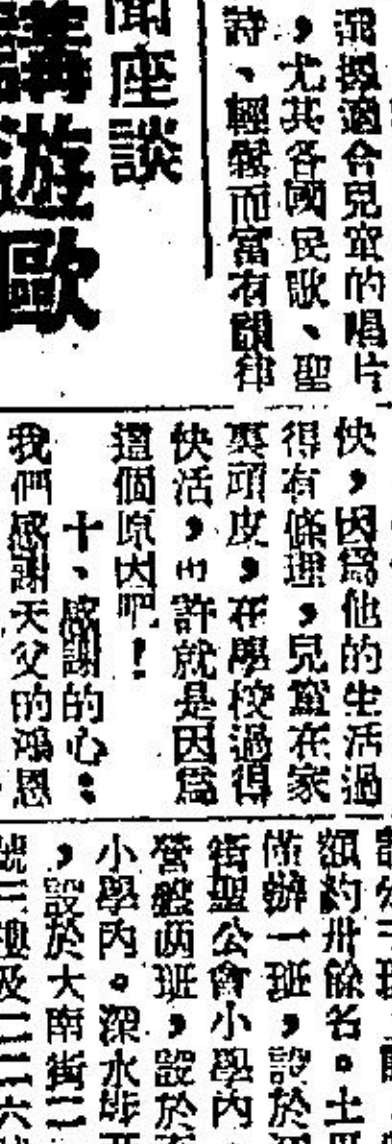 適合兒童的唱片
，尤其各國民歌、聖
詩、輕鬆而富有韻律
座談
講遊歐
快，因爲他的生活過
得有條理，兒童在家
頑皮，在學校過得
快活，也許就是因爲
這個原因吧！
十、感謝的心：
我們感謝天父的鴻恩
額約卅餘名。土
僅辦一班，設於
街聖公會小學內
營盤兩班，設於
小學內。深水埗
，設於大南街二
號三樓及二二六